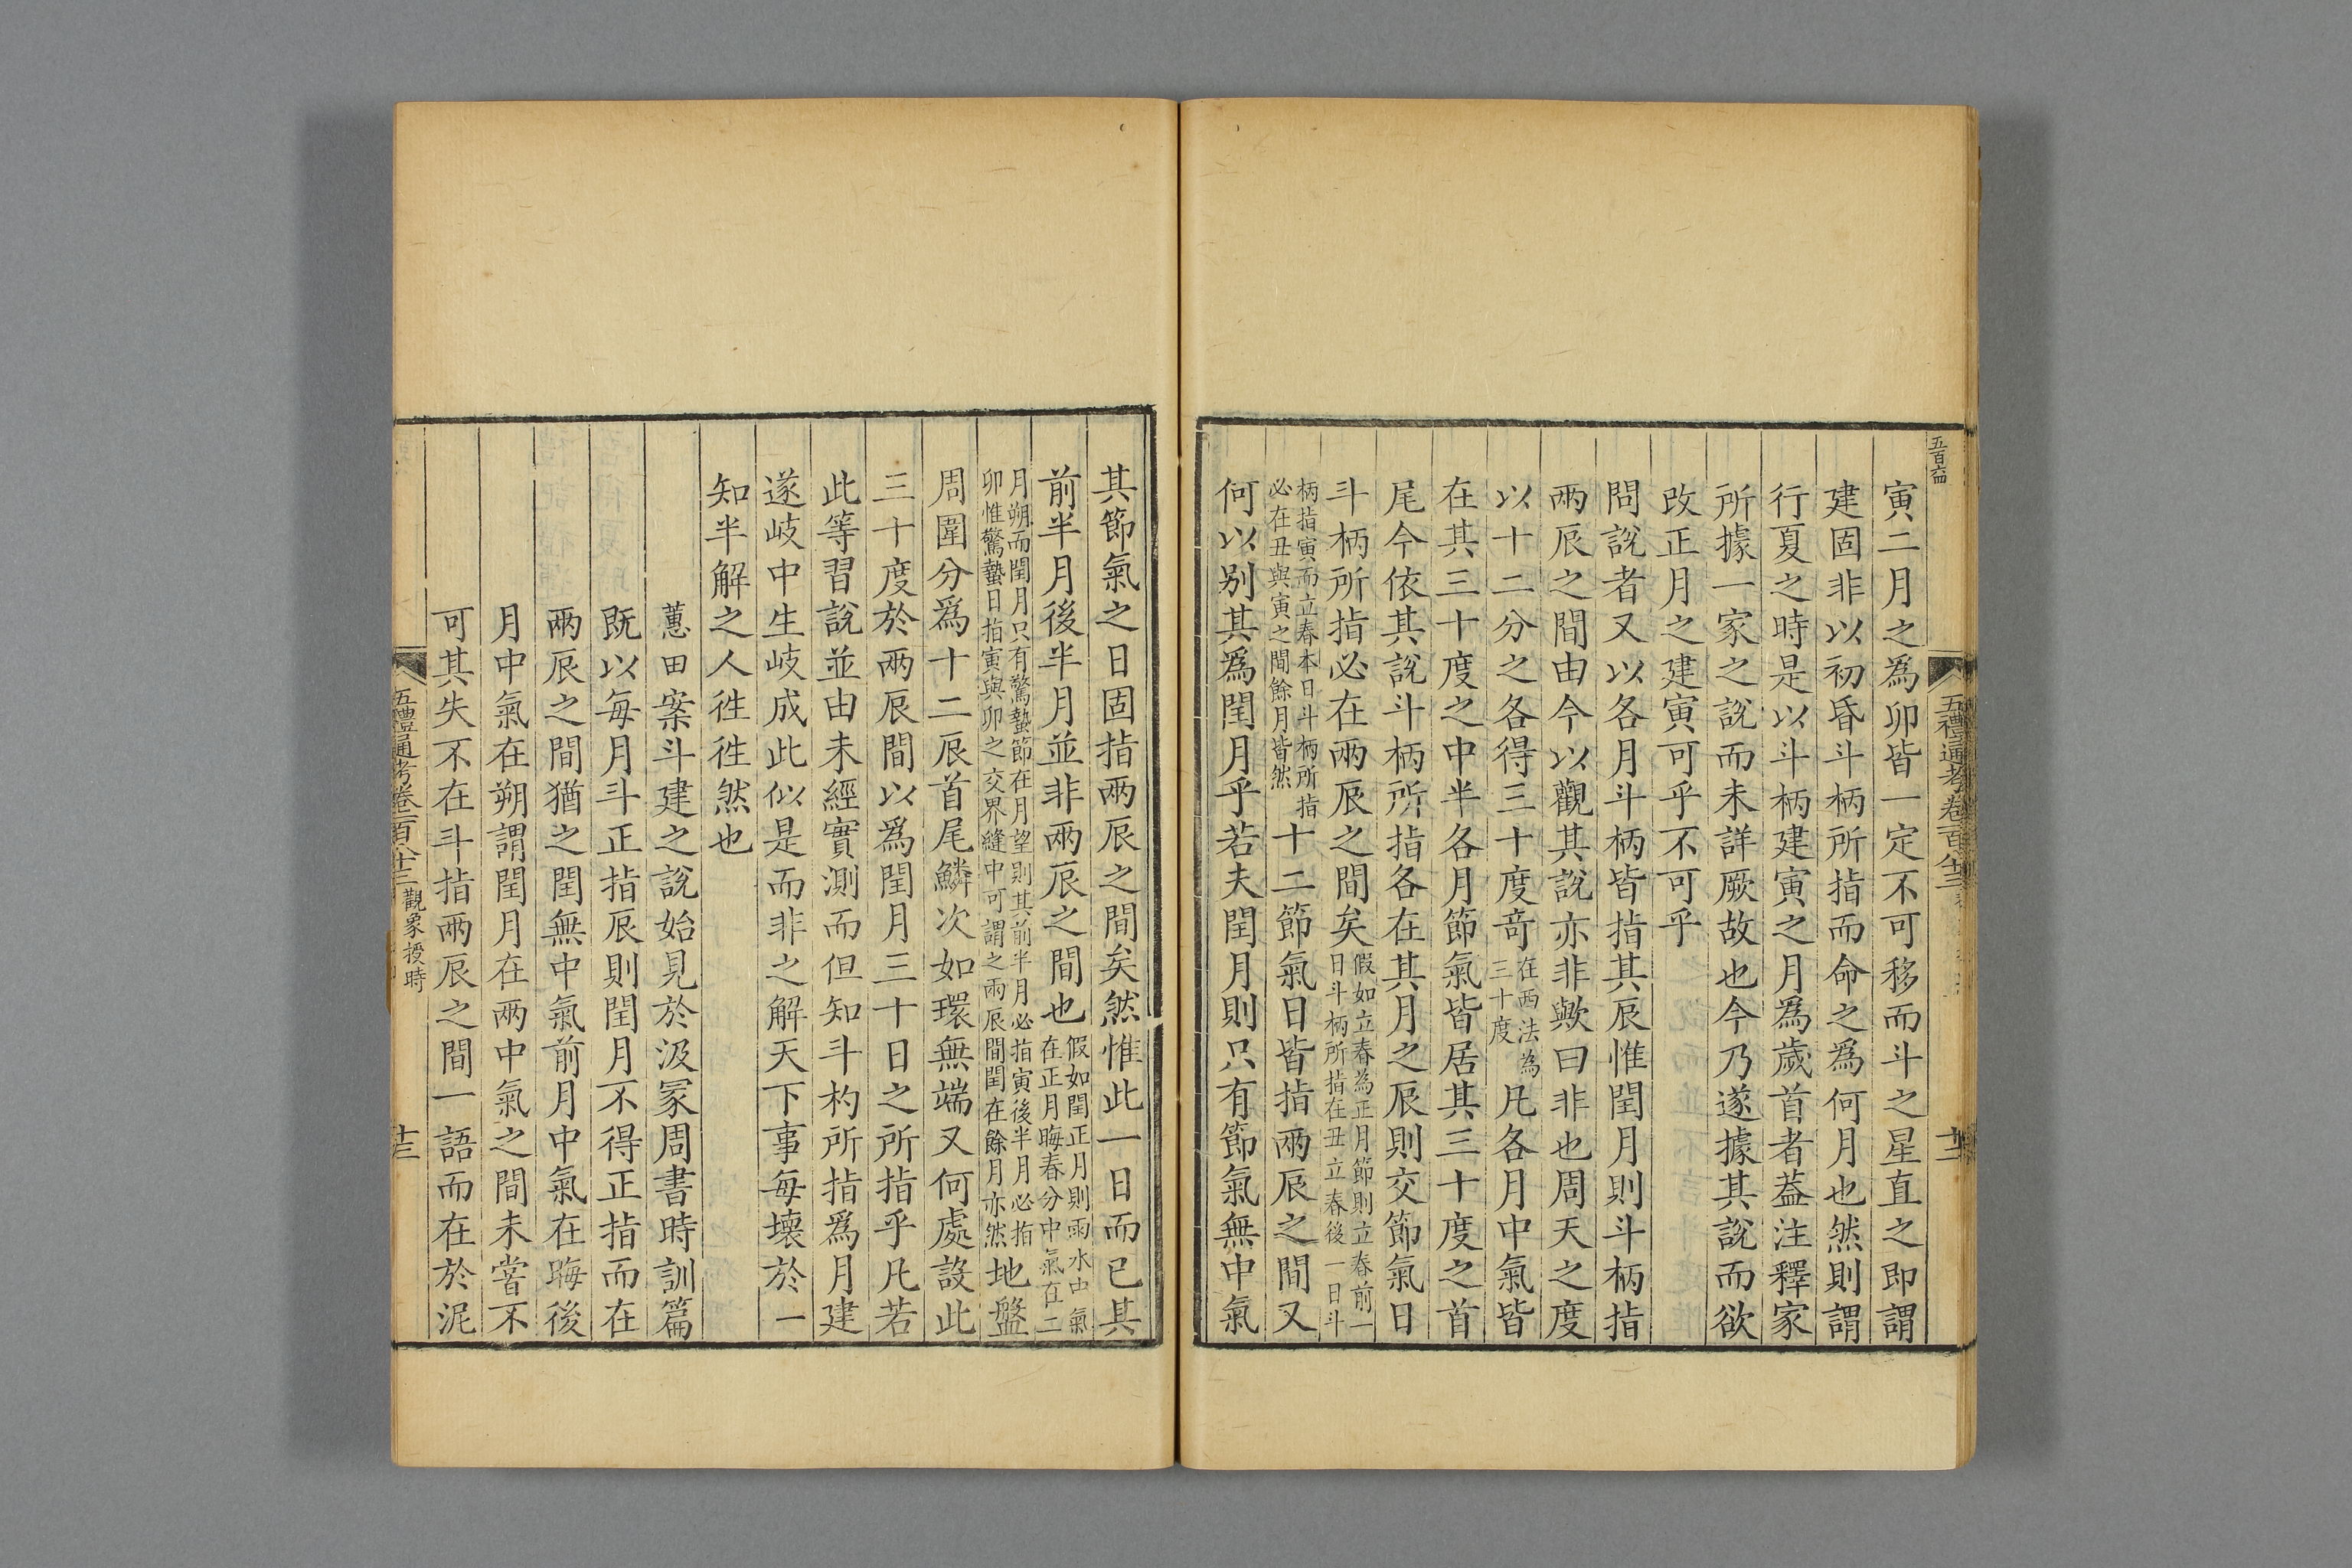 五禮通考卷一百八十三
十二
寅二月之爲卯皆一定不可移而斗之星直之即謂
建固非以初昏斗柄所指而命之爲何月也然則謂
行夏之時是以斗柄建寅之月爲歲首者葢注釋家
所據一家之說而未詳厥故也今乃遂據其說而欲
改正月之建寅可乎不可乎
問說者又以各月斗柄皆指其辰惟閏月則斗柄指
兩辰之間由今以觀其說亦非歟曰非也周天之度
以十二分之各得三十度竒在西法為三十度凡各月中氣皆
在其三十度之中半各月節氣皆居其三十度之首
尾今依其說斗柄所指各在其月之辰則交節氣日
斗柄所指必在兩辰之間矣假如立春為正月節則立春前一日斗柄所指在丑立春後一日斗
柄指寅而立春本日斗柄所指必在丑與寅之間餘月皆然十二節氣日皆指兩辰之間又
何以别其爲閏月乎若夫閏月則只有節氣無中氣
其節氣之日固指兩辰之間矣然惟此一日而已其
前半月後半月並非兩辰之間也假如閏正月則雨水中氣在正月晦春分中氣在二
月朔而閏月只有驚蟄節在月望則其前半月必指寅後半月必指卯惟驚蟄日指寅與卯之交界縫中可謂之兩辰間閏在餘月亦然地盤
周圍分爲十二辰首尾鱗次如環無端又何處設此
三十度於兩辰間以爲閏月三十日之所指乎凡若
此等習說並由未經實測而但知斗杓所指爲月建
遂岐中生岐成此似是而非之解天下事每壞於一
知半解之人徃徃然也
蕙田案斗建之說始見於汲冢周書時訓篇
既以每月斗正指辰則閏月不得正指而在
兩辰之間猶之閏無中氣前月中氣在晦後
月中氣在朔謂閏月在兩中氣之間未嘗不
可其失不在斗指兩辰之間一語而在於泥
五禮通考卷一百八十三 觀象授時
十三